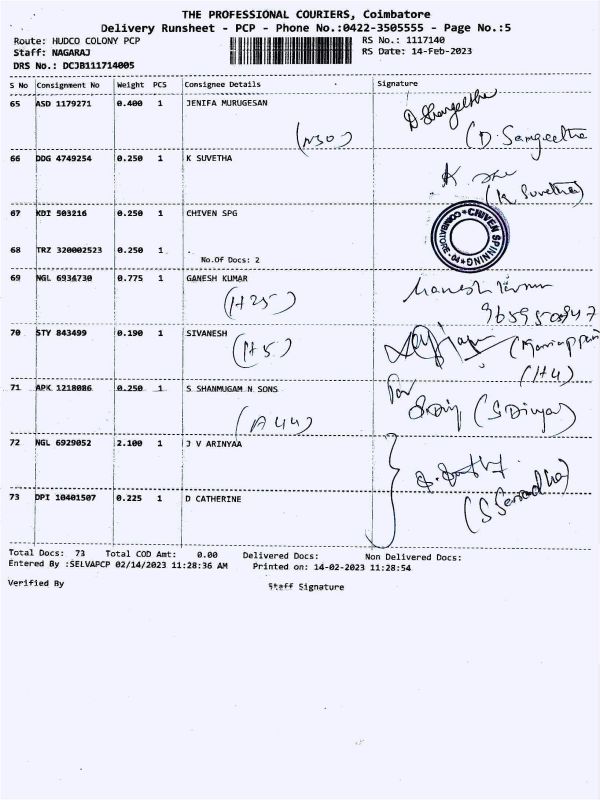 THE PROFESSIONAL COURIERS, Coimbatore
Delivery Runsheet - PCP - Phone No.:0422-3505555 - Page No.:5
Route: HUDCO COLONY PCP RS No.: 1117140
Staff: NAGARAJ RS Date: 14-Feb-2023
DRS No.: DCJB111714005
S No Consignment No Weight PCS Consignee Details Signature
65 ASD 1179271 0.400 1 JENIFA MURUGESAN
(N30) (D. Sangeetha
66 DDG 4749254 0.250 1 K SUVETHA
(K Suvetha)
67 KDI 503216 0.250 1 CHIVEN SPG
CHIVEN SPINNING
COIMBATORE
68 TRZ 320002523 0.250 1
No.Of Docs: 2
69 NGL 6934730 0.775 1 GANESH KUMAR
(H25)
70 STY 843499 0.190 1 SIVANESH
(H5) (Mariappan)
(H4)
71 APK 1218086 0.250 1 S SHANMUGAM N SONS
For
(A44) (S Divya)
72 NGL 6929052 2.100 1 J V ARINYAA
73 DPI 10401507 0.225 1 D CATHERINE
Total Docs: 73 Total COD Amt: 0.00 Delivered Docs: Non Delivered Docs:
Entered By :SELVAPCP 02/14/2023 11:28:36 AM Printed on: 14-02-2023 11:28:54
Verified By Staff Signature